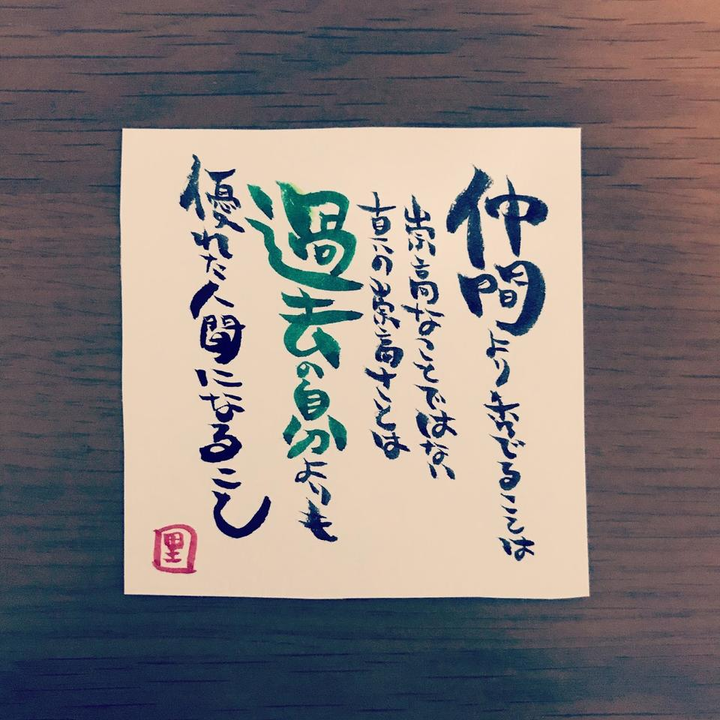 仲間より秀でることは
崇高なことではない
真の崇高さとは
過去の自分よりも
優れた人間になること
里